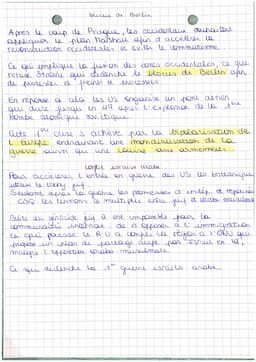 blocus de Berlin
Après le coup de Prague, les occidentaux souhaitent
appliquer le plan Marshall afin d'accélérer la
reconstruction occidentale et éviter le communisme.
Ce qui implique la fusion des zones occidentales, ce que
refuse Staline qui déclenche le blocus de Berlin afin
de protester et freiner ce processus.
En réponse à cela les US engagent un pont aérien
qui dure jusqu'en 49 après l'explosion de la 1ère
bombe atomique soviétique.
Cette 1ère crise s'achève par la bipolarisation de
l'Europe entraînant une mondialisation de la
guerre suivie par une course aux armements.
conflit israélo arabe
Pour accélérer l'entrée en guerre des US les britanniques
utilise le
Seulement après la guerre les promesses d'indép et
CSQ: les tensions se multiplie entre juif et arabes musulmans
Suite au génocide juif il est impossible pour la
communauté de s'opposer à l'immigration
ce qui pousse le R-U à confier la région à l'ONU qui
propose un plan de partage accepté par Israël en 48,
malgré l'opposition arabo musulmane.
Ce qui déclenche la 1ère guerre israélo arabe.